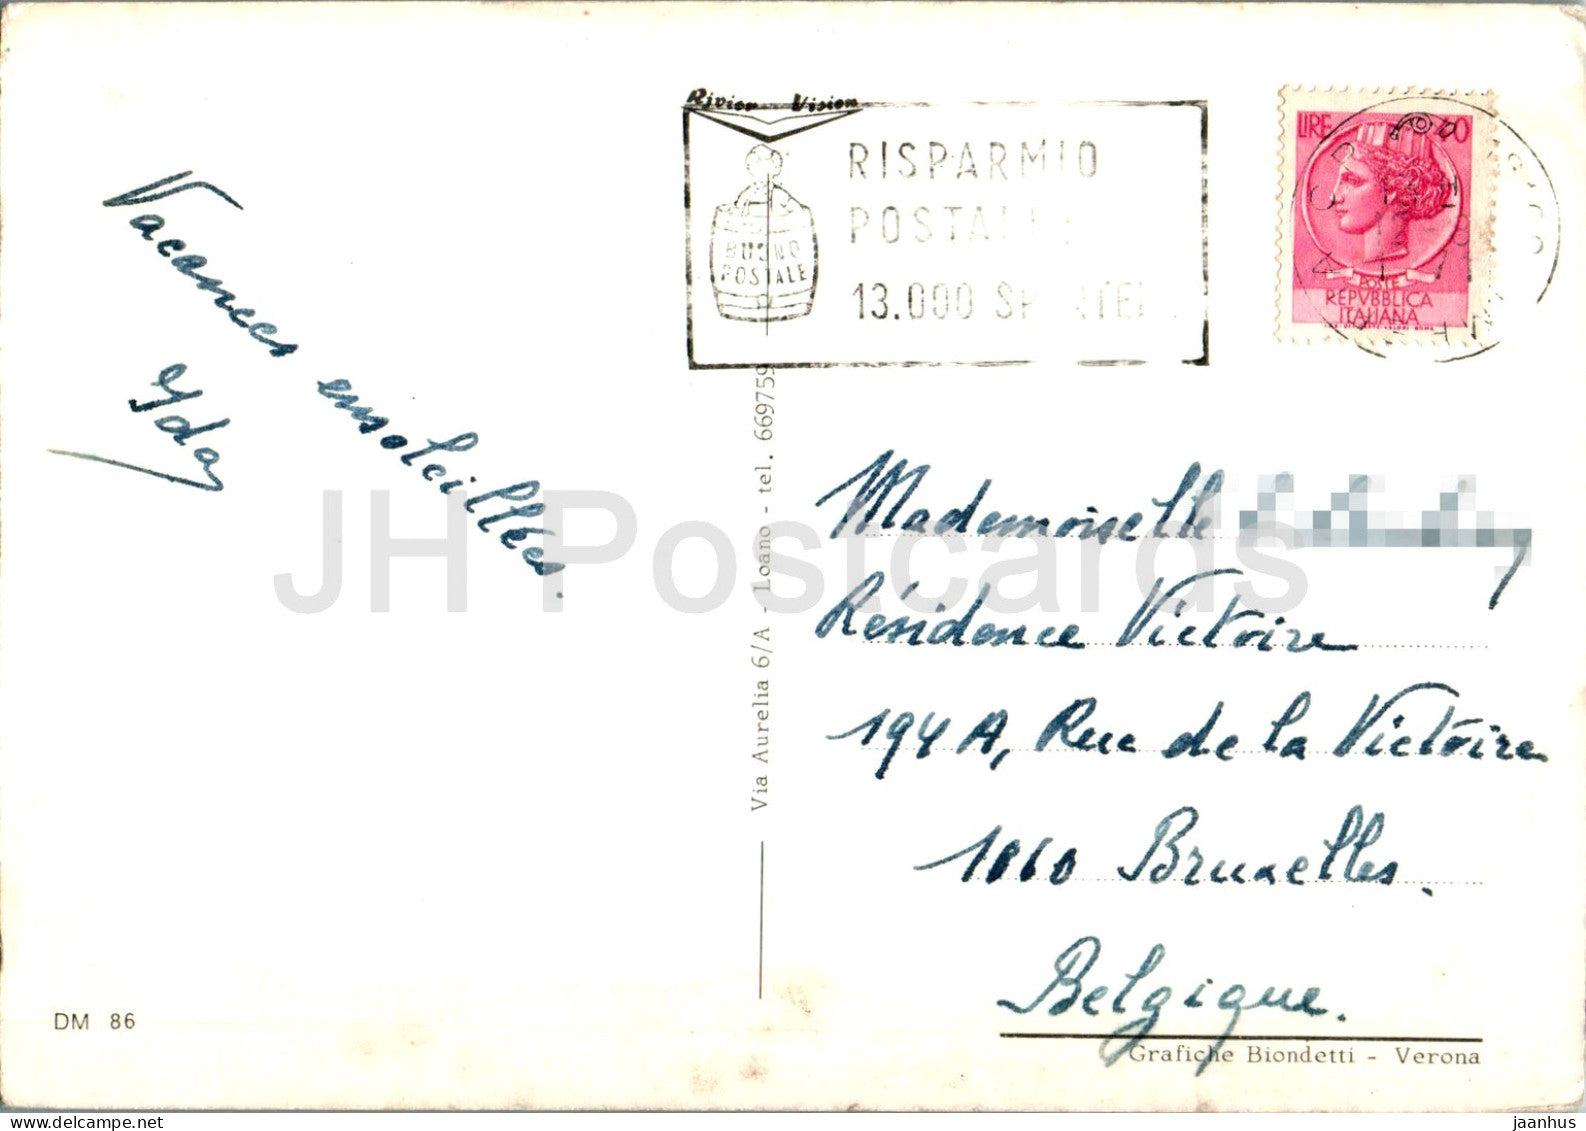 Vacances ensoleillées.
Yda
DM 86
Via Aurelia 6/A - Loano - tel. 669759
Vision
BUONO
POSTALE
RISPARMIO
POSTALE
13.000
LIRE
POSTE
REPVBBLICA
ITALIANA
Mademoiselle
Résidence Victoire
194 A, Rue de la Victoire
1060 Bruxelles.
Belgique.
Grafiche Biondetti - Verona
JH Postcards
jaanhus